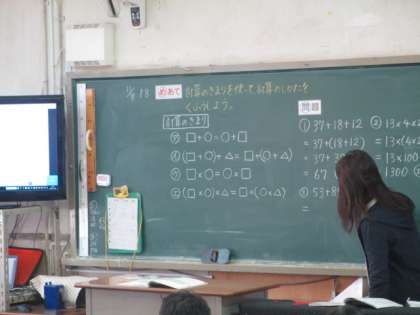 めあて 計算のきまりを使って計算のしかたを
くふうしよう。
計算のきまり
㋐ □+○=○+□
㋑ (□+○)+△=□+(○+△)
㋒ □×○=○×□
㋓ (□×○)×△=□×(○×△)
問題
① 37+18+12
= 37+(18+12)
= 37+3
= 67
② 13×4×2
= 13×(4×2
= 13×100
1300
③ 53+8
=